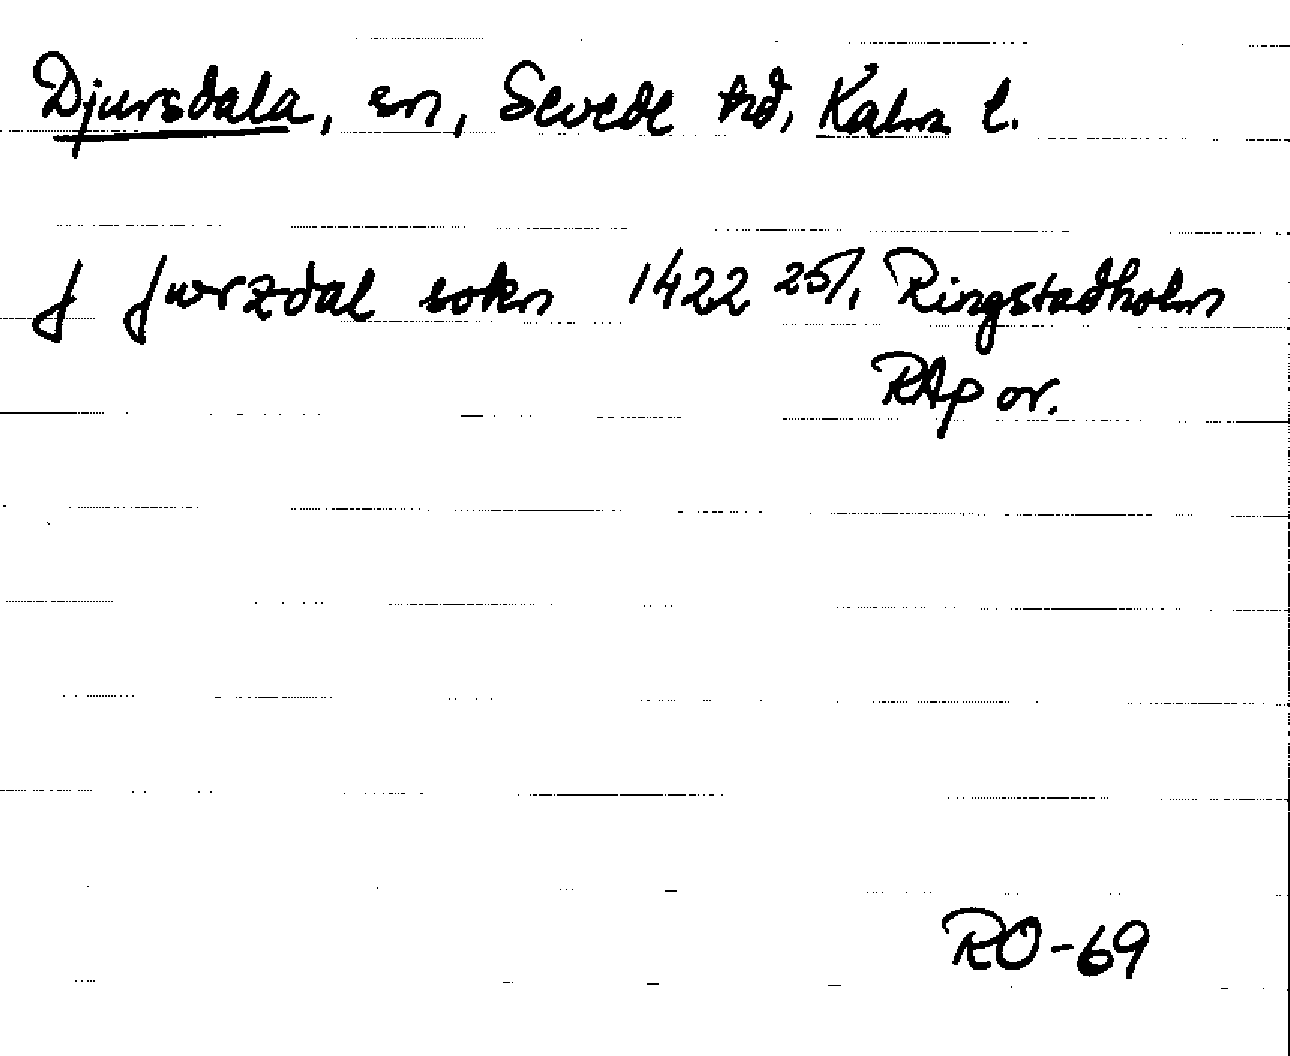 Djursdala, sn, Sevede hd, Kalm l.
J Jwrzdal sokn 1422 25/1 Ringstadholm
RAp or.
RO-69